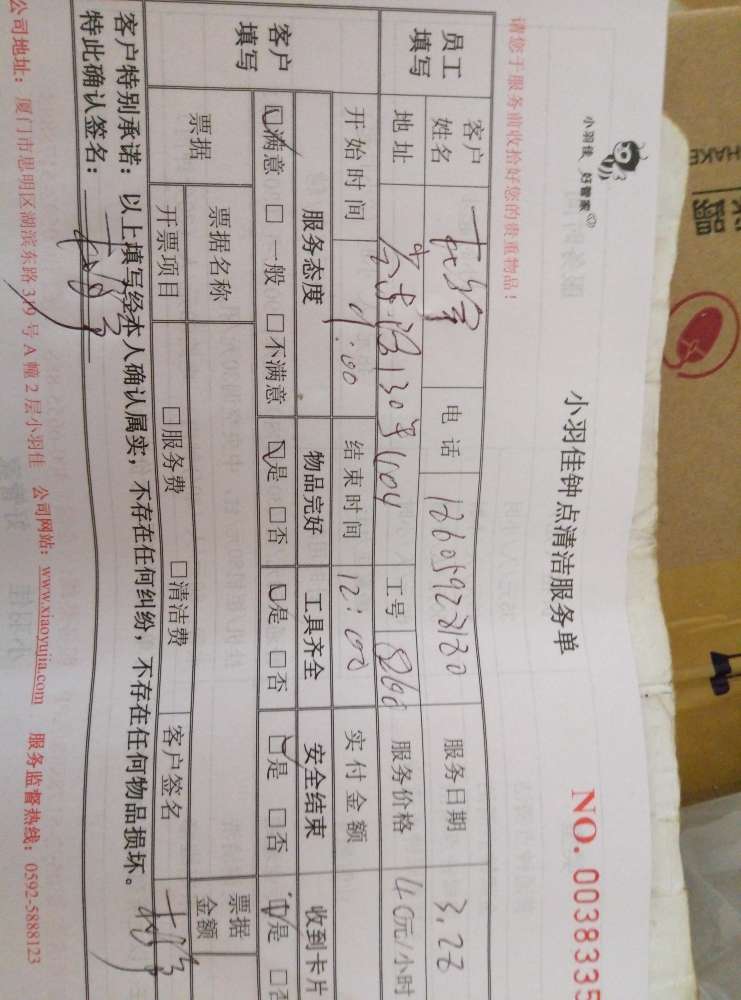 小羽佳 好管家
小羽佳钟点清洁服务单
NO. 0038335
请您于服务前收拾好您的贵重物品！
员工填写 客户姓名 电话 服务日期 3.28
地址 工号 服务价格 40元/小时
开始时间 9:00 结束时间 12:00 实付金额
客户填写 服务态度 物品完好 工具齐全 安全结束 收到卡片
☑满意 □一般 □不满意 ☑是 □否 ☑是 □否 ☑是 □否 ☑是 □否
票据 票据名称 票据金额
开票项目 □服务费 □清洁费 客户签名
客户特别承诺：以上填写经本人确认属实，不存在任何纠纷，不存在任何物品损坏。
特此确认签名：
公司地址：厦门市思明区湖滨东路319号A幢2层小羽佳 公司网站：www.xiaoyujia.com 服务监督热线：0592-5888123